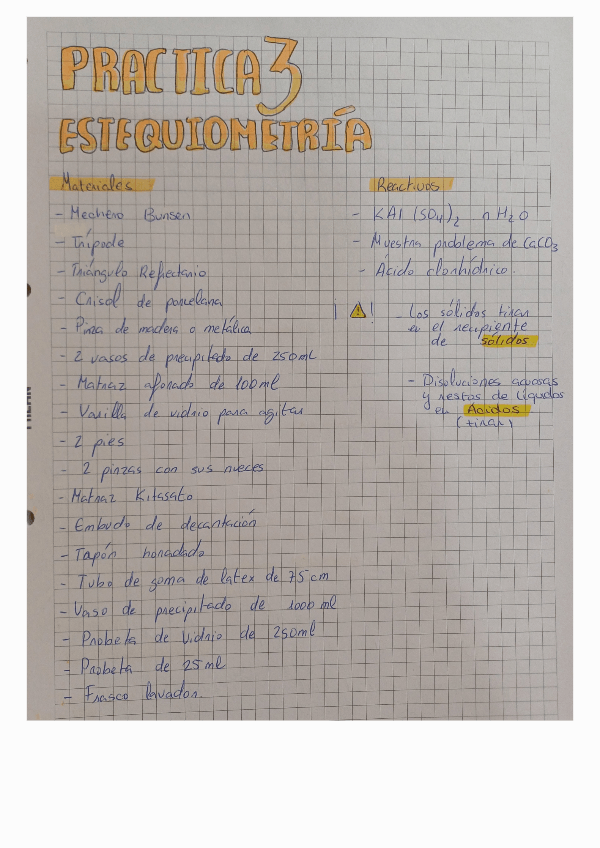 PRACTICA 3
ESTEQUIOMETRÍA
Materiales
- Mechero Bunsen
- Trípode
- Triángulo Refrectario
- Crisol de porcelana
- Pinza de madera o metálica
- 2 vasos de precipitado de 250mL
- Matraz aforado de 100ml
- Varilla de vidrio para agitar
- 2 pies
- 2 pinzas con sus nueces
- Matraz Kitasato
- Embudo de decantación
- Tapón horadado
- Tubo de goma de latex de 75 cm
- Vaso de precipitado de 1000 ml
- Probeta de vidrio de 250ml
- Probeta de 25 ml
- Frasco lavador.
Reactivos
- KAl (SO4)2 nH2O
- Muestra problema de CaCO3
- Ácido clorhídrico.
¡ ! ! - Los sólidos tirar
en el recipiente
de sólidos
- Disoluciones acuosas
y restos de líquidos
en Ácidos
(tirar)